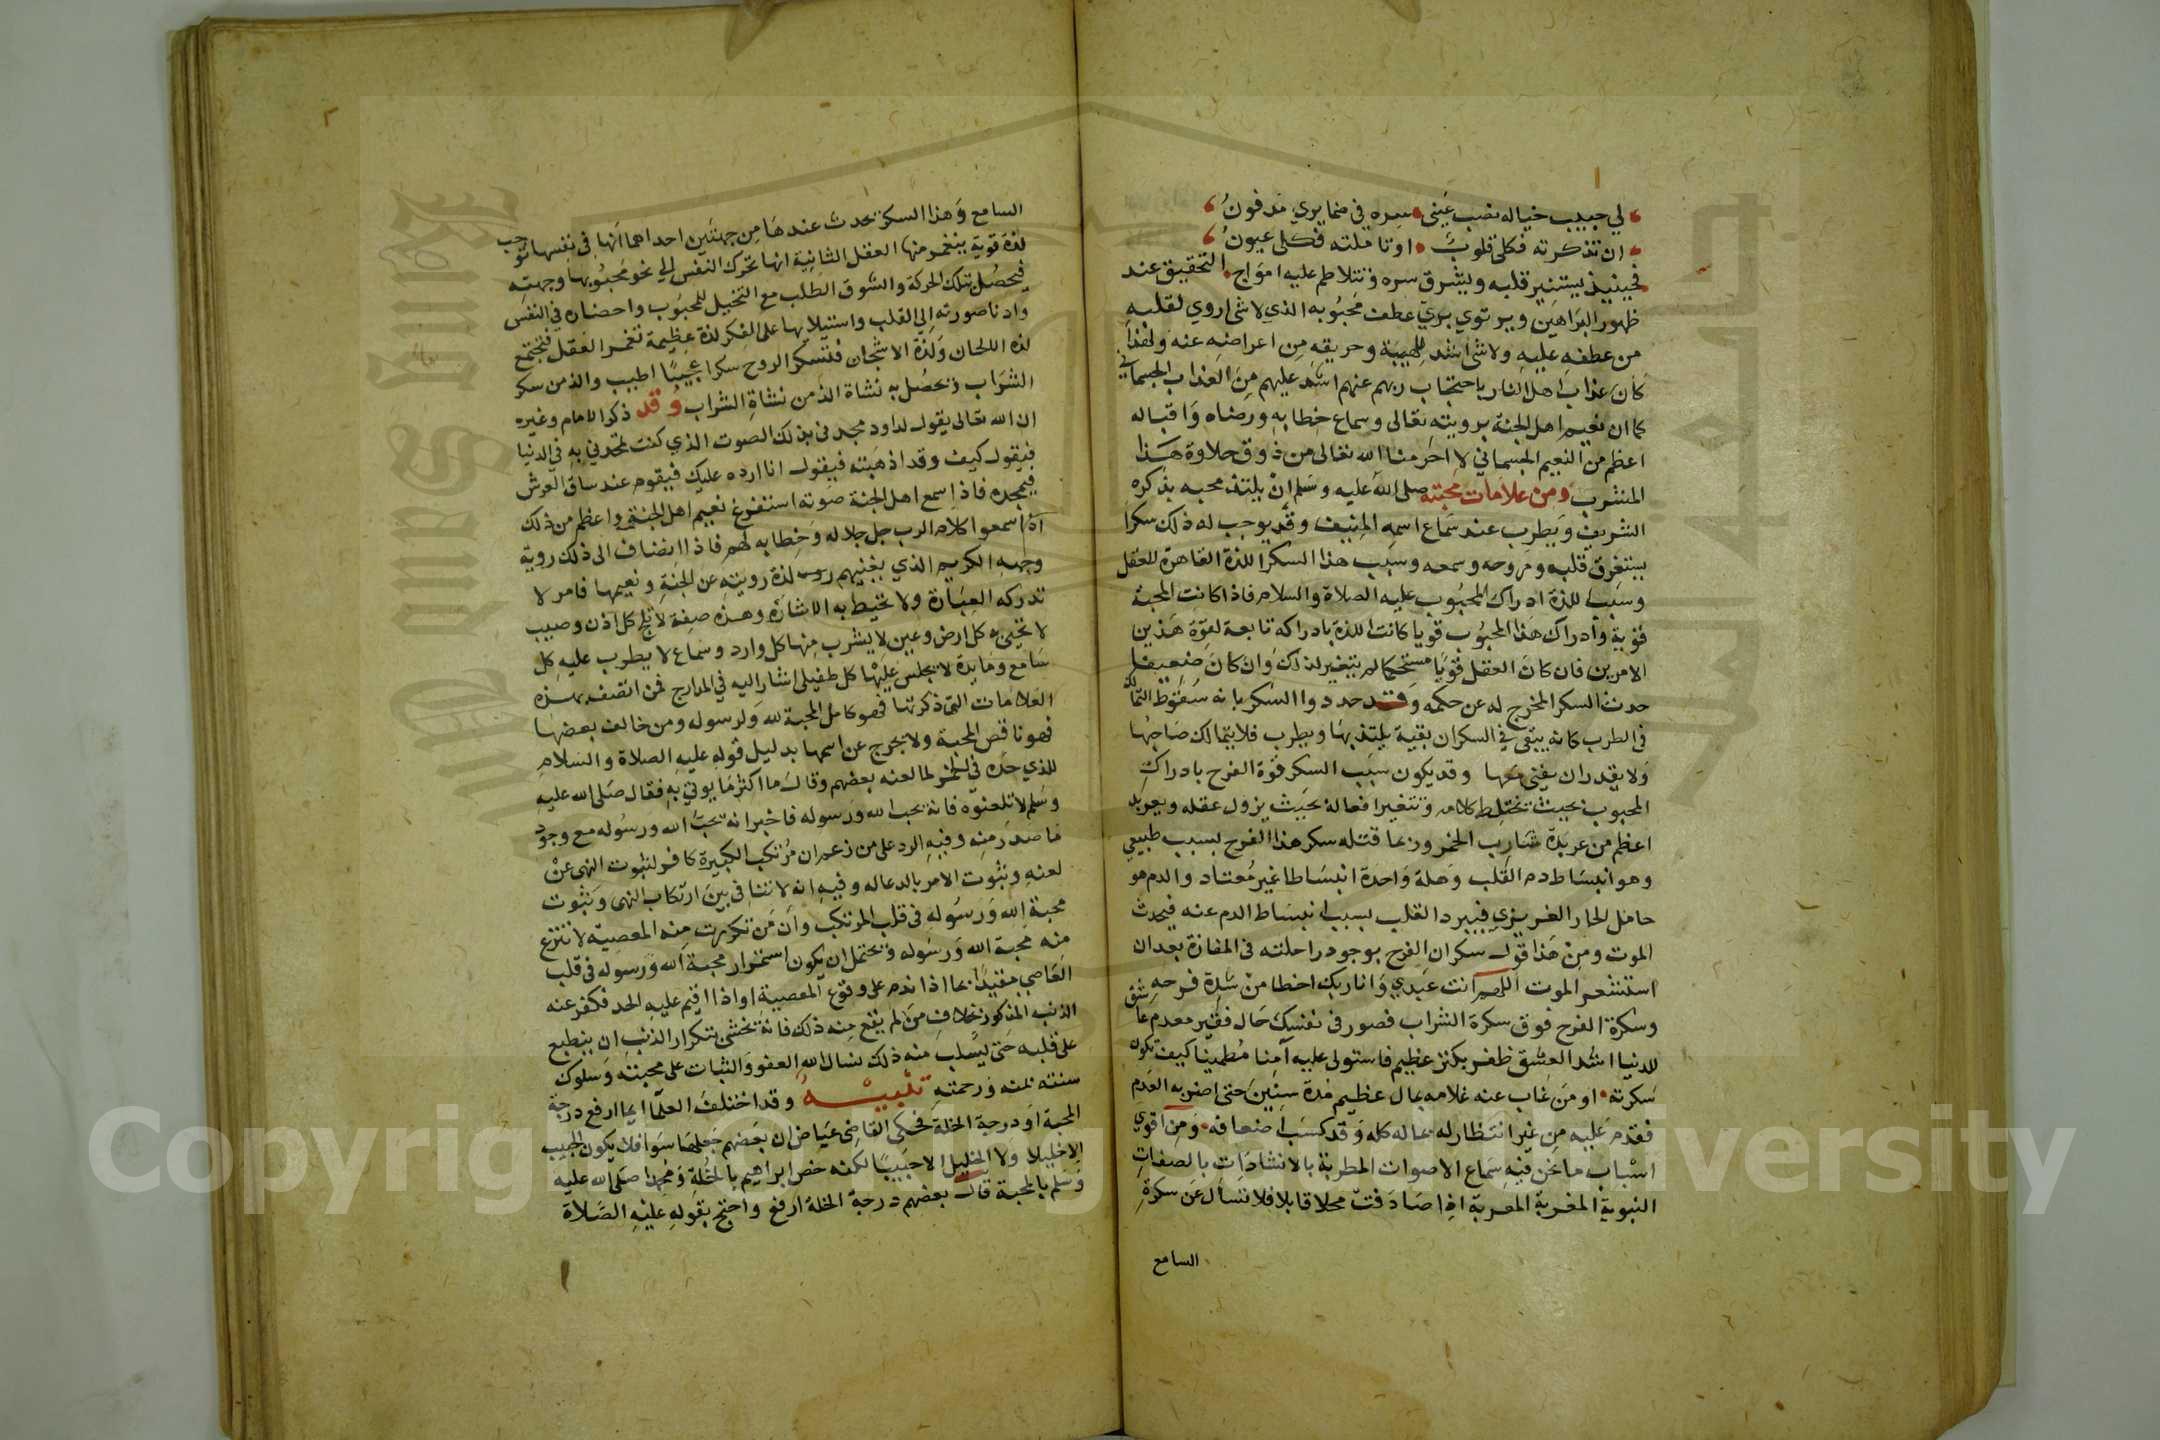 لي حبيب خياله نصب عيني سره في ضمايري مدفون
ان تذكرته فكلي قلوب او تاملته فكلي عيون
فحينيذ يستنير قلبه ويشرق سره وتتلاطم عليه امواج التحقيق عند
ظهور البراهين ويرتوي بري عطف محبوبه الذي لا شي اروي لقلبه
من عطفه عليه ولا شي اشد للهيبه وحريقه من اعراضه عنه ولهذا
كان عذاب اهل النار باحتجاب ربهم عنهم اشد عليهم من العذاب الجسماني
كما ان نعيم اهل الجنة برويته تعالى وسماع خطابه ورضاه واقباله
اعظم من النعيم الجسماني لا احرمنا الله تعالى من ذوق حلاوة هذا
المشرب ومن علامات محبته صلى الله عليه وسلم ان يلتذ محبه بذكره
الشريف ويطرب عند سماع اسمه المنيف وقد يوجب له ذلك سكرا
يستغرق قلبه وروحه وسمعه وسبب هذا السكر اللذة القاهرة للعقل
وسبب اللذة ادراك المحبوب عليه الصلاة والسلام فاذا كانت المحبة
قوية وادراك هذا المحبوب قويا كانت اللذة بادراكه تابعة لقوة هذين
الامرين فان كان العقل قويا مستحكما لم يتغير لذلك وان كان ضعيفا
حدث السكر المخرج له عن حكمه وقد حددوا السكر بانه سقوط التمالك
في الطرب كانه يبقى في السكران بقية يلتذ بها ويطرب فلا يتمالك صاحبها
ولا يقدر ان يفني معها وقد يكون سبب السكر قوة الفرح بادراك
المحبوب بحيث تختلط كلامه وتتغير افعاله بحيث يزول عقله ويعربد
اعظم من عربدة شارب الخمر وربما قتله سكر هذا الفرح بسبب طبيعي
وهو انبساط دم القلب وهلة واحدة انبساطا غير معتاد والدم هو
حامل الحار الغريزي فيبرد القلب بسبب انبساط الدم عنه فيحدث
الموت ومن هذا قول سكران الفرح بوجود راحلته في المفازة بعد ان
استشعر الموت اللهم انت عبدي وانا ربك اخطا من شدة فرحه
وسكرة الفرح فوق سكرة الشراب فصور في نفسك حال فقير معدم عاشق
للدنيا اشد العشق ظفر بكنز عظيم فاستولى عليه آمنا مطمينا كيف تكون
سكرته او من غاب عنه غلامه بمال عظيم مدة سنين حتى اضر به العدم
فقدم عليه من غير انتظار له بماله كله وقد كسب اضعافه ومن اقوي
اسباب ما نحن فيه سماع الاصوات المطربة بالانشادات بالصفات
النبوية المغربة المعربة اذا صادفت محلا قابلا فلا تسال عن سكرة
السامع
السامع وهذا السكر تحدث عندها من جهتين احداهما انها في نفسها توجب
لذة قوية ينغمر منها العقل الثانية انها تحرك النفس الى نحو محبوبها وجهته
فيحصل بتلك الحركة والشوق الطلب مع التخيل للمحبوب واحضاره في النفس
وادنا صورته الى القلب واستيلايها على الفكر لذة عظيمة تغمر العقل فتجتمع
لذة اللحان ولذة الاشجان فتسكر الروح سكرا عجيبا اطيب والذ من سكر
الشراب وتحصل به نشاة الذ من نشاة الشراب وقد ذكر الامام وغيره
ان الله تعالى يقول لداود مجدني بذلك الصوت الذي كنت تمجدني به في الدنيا
فيقول كيف وقد اذهبته فيقول انا ارده عليك فيقوم عند ساق العرش
فيمجده فاذا سمع اهل الجنة صوته استفرغ نعيم اهل الجنة واعظم من ذلك
اذا سمعوا كلام الرب جل جلاله وخطابه لهم فاذا انضاف الى ذلك روية
وجهه الكريم الذي يغنيهم لذة رويته عن الجنة ونعيمها فامر لا
تدركه العبارة ولا تحيط به الاشارة وهذه صفة لا تلج كل اذن وصيب
لا تحيى به كل ارض وعين لا يشرب منها كل وارد وسماع لا يطرب عليه كل
سامع ومايدة لا يجلس عليها كل طفيلي اشار اليه في المدارج فمن اتصف بهذه
العلامات التي ذكرتها فهو كامل المحبة لله ولرسوله ومن خالف بعضها
فهو ناقص المحبة ولا يخرج عن اسمها بدليل قوله عليه الصلاة والسلام
للذي حده في الخمر لما لعنه بعضهم وقال ما اكثر ما يوتي به فقال صلى الله عليه
وسلم لا تلعنوه فانه يحب الله ورسوله فاخبر انه يحب الله ورسوله مع وجود
ما صدر منه وفيه الرد على من زعم ان مرتكب الكبيرة كافر لثبوت النهي عن
لعنه وثبوت الامر بالدعاله وفيه انه لا تنافي بين ارتكاب النهي وثبوت
محبة الله ورسوله في قلب المرتكب وان من تكررت منه المعصية لا تنتزع
منه محبة الله ورسوله وتحتمل ان يكون استمرار محبة الله ورسوله في قلب
العاصي مقيدا بما اذا ندم على وقوع المعصية او اذا اقيم عليه الحد فكفر عنه
الذنب المذكور بخلاف من لم يقع منه ذلك فانه تخشى بتكرار الذنب ان ينطبع
على قلبه حتى يسلب منه ذلك نسال الله العفو والثبات على محبته وسلوك
سنته بمنه ورحمته تنبيه وقد اختلف العلما ايما ارفع درجة
المحبة او درجة الخلة فحكى القاضي عياض ان بعضهم جعلهما سوا فلا يكون الحبيب
الا خليلا ولا الخليل الا حبيبا لكنه خص ابراهيم بالخلة ومحمدا صلى الله عليه
وسلم بالمحبة قال بعضهم درجة الخلة ارفع واحتج بقوله عليه الصلاة
Copyright © King Saud University